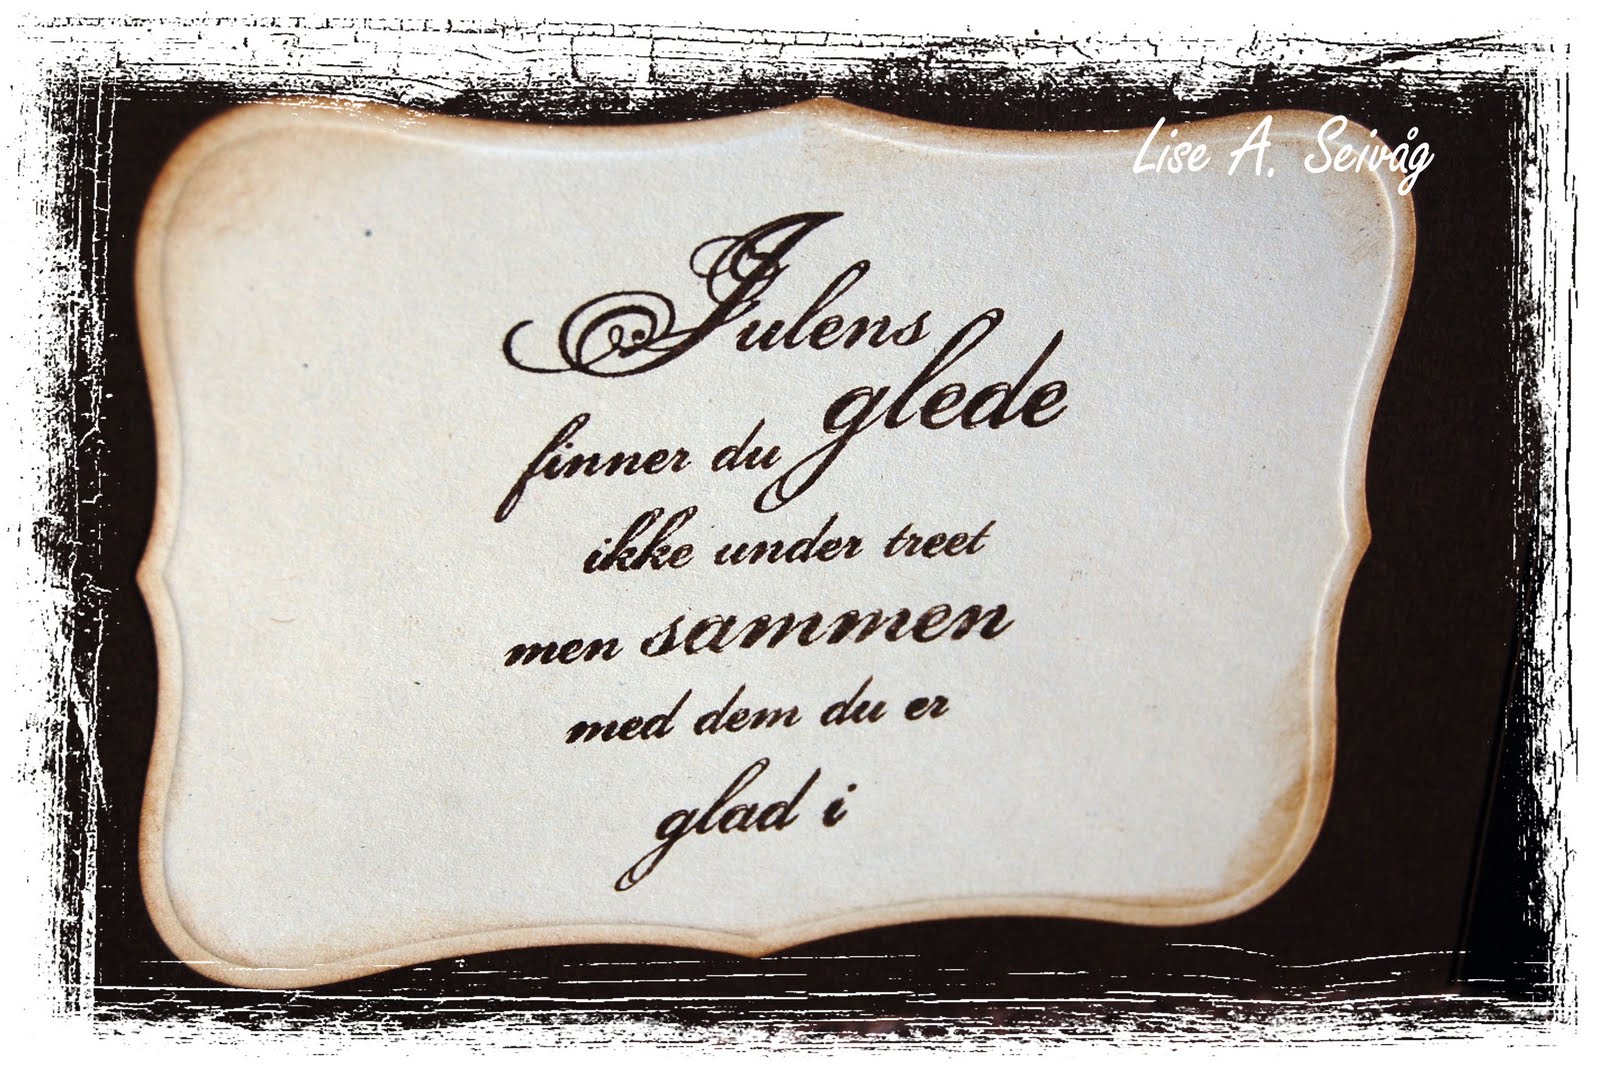 Lise A. Seivåg
Julens
glede
finner du
ikke under treet
men sammen
med dem du er
glad i